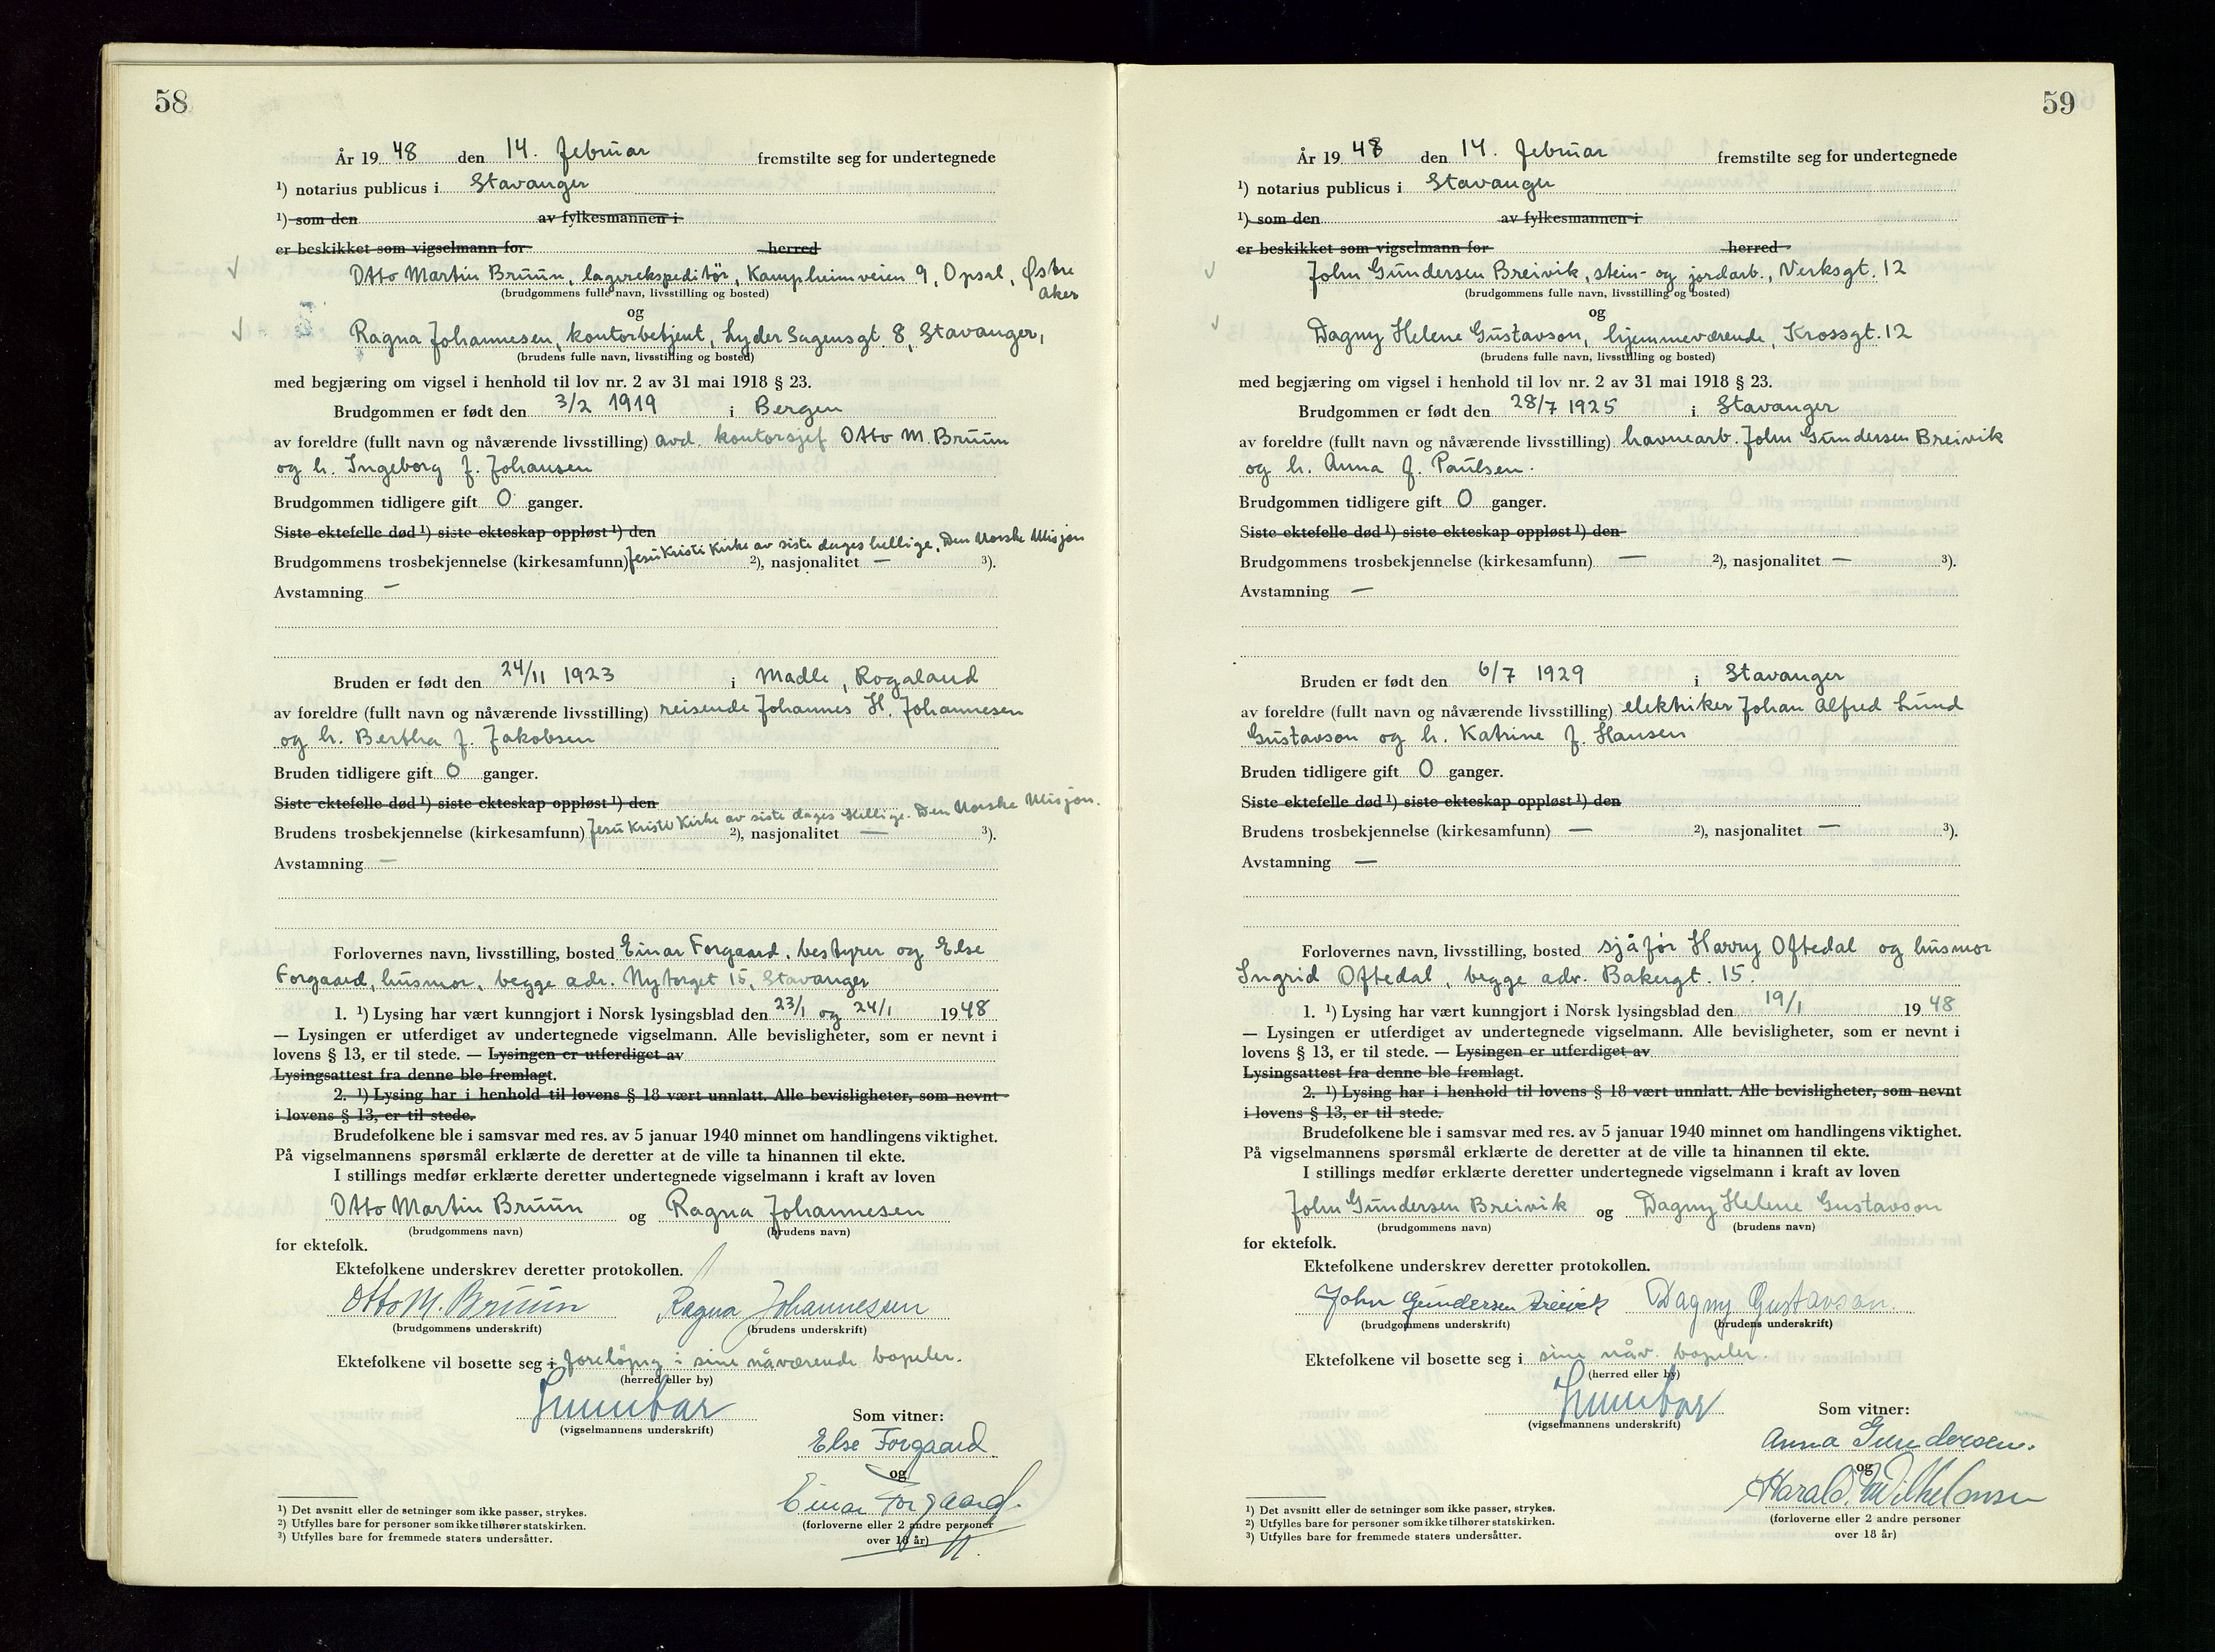 58
År 19 48 den 14. februar fremstilte seg for undertegnede
¹) notarius publicus i Stavanger
¹) som den av fylkesmannen i
er beskikket som vigselmann for herred
Otto Martin Bruun, lagerekspeditör, Kampheimveien 9, Opsal, Østre
Aker
(brudgommens fulle navn, livsstilling og bosted)
og
Ragna Johannesen, kontorbetjent, Lyder Sagensgt. 8, Stavanger,
(brudens fulle navn, livsstilling og bosted)
med begjæring om vigsel i henhold til lov nr. 2 av 31 mai 1918 § 23.
Brudgommen er født den 3/2 1919 i Bergen
av foreldre (fullt navn og nåværende livsstilling) avd. kontorsjef Otto M. Bruun
og h. Ingeborg f. Johansen
Brudgommen tidligere gift 0 ganger.
Siste ektefelle død ¹) siste ekteskap oppløst ¹) den
Brudgommens trosbekjennelse (kirkesamfunn) Jesu Kristi Kirke av siste dages hellige, Den Norske Misjon ²), nasjonalitet — ³).
Avstamning —
Bruden er født den 24/11 1923 i Madla, Rogaland
av foreldre (fullt navn og nåværende livsstilling) reisende Johannes H. Johannesen
og h. Bertha f. Jakobsen
Bruden tidligere gift 0 ganger.
Siste ektefelle død ¹) siste ekteskap oppløst ¹) den
Brudens trosbekjennelse (kirkesamfunn) Jesu Kristi Kirke av siste dages Hellige. Den Norske Misjon. ²), nasjonalitet — ³).
Avstamning —
Forlovernes navn, livsstilling, bosted Einar Forgaard, bestyrer og Else
Forgaard, husmor, begge adr. Nytorget 15, Stavanger
1. ¹) Lysing har vært kunngjort i Norsk lysingsblad den 23/1 og 24/1 1948
— Lysingen er utferdiget av undertegnede vigselmann. Alle bevisligheter, som er nevnt i
lovens § 13, er til stede. — Lysingen er utferdiget av
Lysingsattest fra denne ble fremlagt.
2. ¹) Lysing har i henhold til lovens § 18 vært unnlatt. Alle bevisligheter, som nevnt
i lovens § 13, er til stede.
Brudefolkene ble i samsvar med res. av 5 januar 1940 minnet om handlingens viktighet.
På vigselmannens spørsmål erklærte de deretter at de ville ta hinannen til ekte.
I stillings medfør erklærte deretter undertegnede vigselmann i kraft av loven
Otto Martin Bruun og Ragna Johannesen
(brudgommens navn) (brudens navn)
for ektefolk.
Ektefolkene underskrev deretter protokollen.
Otto M. Bruun Ragna Johannessen
(brudgommens underskrift) (brudens underskrift)
Ektefolkene vil bosette seg i forelöpig i sine nåværende bopeler.
(herred eller by)
(vigselmannens underskrift)
Som vitner:
Else Forgaard
og
Einar Forgaard.
(forloverne eller 2 andre personer
over 18 år)
¹) Det avsnitt eller de setninger som ikke passer, strykes.
²) Utfylles bare for personer som ikke tilhører statskirken.
³) Utfylles bare for fremmede staters undersåtter.
59
År 19 48 den 14. februar fremstilte seg for undertegnede
¹) notarius publicus i Stavanger
¹) som den av fylkesmannen i
er beskikket som vigselmann for herred
John Gundersen Breivik, stein- og jordarb., Verksgt. 12
(brudgommens fulle navn, livsstilling og bosted)
og
Dagny Helene Gustavson, hjemmeværende, Krossgt. 12
(brudens fulle navn, livsstilling og bosted)
med begjæring om vigsel i henhold til lov nr. 2 av 31 mai 1918 § 23.
Brudgommen er født den 28/7 1925 i Stavanger
av foreldre (fullt navn og nåværende livsstilling) havnearb. John Gundersen Breivik
og h. Anna f. Paulsen.
Brudgommen tidligere gift 0 ganger.
Siste ektefelle død ¹) siste ekteskap oppløst ¹) den
Brudgommens trosbekjennelse (kirkesamfunn) — ²), nasjonalitet — ³).
Avstamning —
Bruden er født den 6/7 1929 i Stavanger
av foreldre (fullt navn og nåværende livsstilling) elektriker Johan Alfred Lund
Gustavson og h. Katrine f. Hansen
Bruden tidligere gift 0 ganger.
Siste ektefelle død ¹) siste ekteskap oppløst ¹) den
Brudens trosbekjennelse (kirkesamfunn) — ²), nasjonalitet — ³).
Avstamning —
Forlovernes navn, livsstilling, bosted sjåför Harry Oftedal og husmor
Ingrid Oftedal, begge adr. Bakergt. 15.
1. ¹) Lysing har vært kunngjort i Norsk lysingsblad den 19/1 1948
— Lysingen er utferdiget av undertegnede vigselmann. Alle bevisligheter, som er nevnt i
lovens § 13, er til stede. — Lysingen er utferdiget av
Lysingsattest fra denne ble fremlagt.
2. ¹) Lysing har i henhold til lovens § 18 vært unnlatt. Alle bevisligheter, som nevnt
i lovens § 13, er til stede.
Brudefolkene ble i samsvar med res. av 5 januar 1940 minnet om handlingens viktighet.
På vigselmannens spørsmål erklærte de deretter at de ville ta hinannen til ekte.
I stillings medfør erklærte deretter undertegnede vigselmann i kraft av loven
John Gundersen Breivik og Dagny Helene Gustavson
(brudgommens navn) (brudens navn)
for ektefolk.
Ektefolkene underskrev deretter protokollen.
John Gundersen Breivik Dagny Gustavson.
(brudgommens underskrift) (brudens underskrift)
Ektefolkene vil bosette seg i sine nåv. bopeler.
(herred eller by)
(vigselmannens underskrift)
Som vitner:
Anna Gundersen.
og
Harald Wilhelmsen
(forloverne eller 2 andre personer
over 18 år)
¹) Det avsnitt eller de setninger som ikke passer, strykes.
²) Utfylles bare for personer som ikke tilhører statskirken.
³) Utfylles bare for fremmede staters undersåtter.